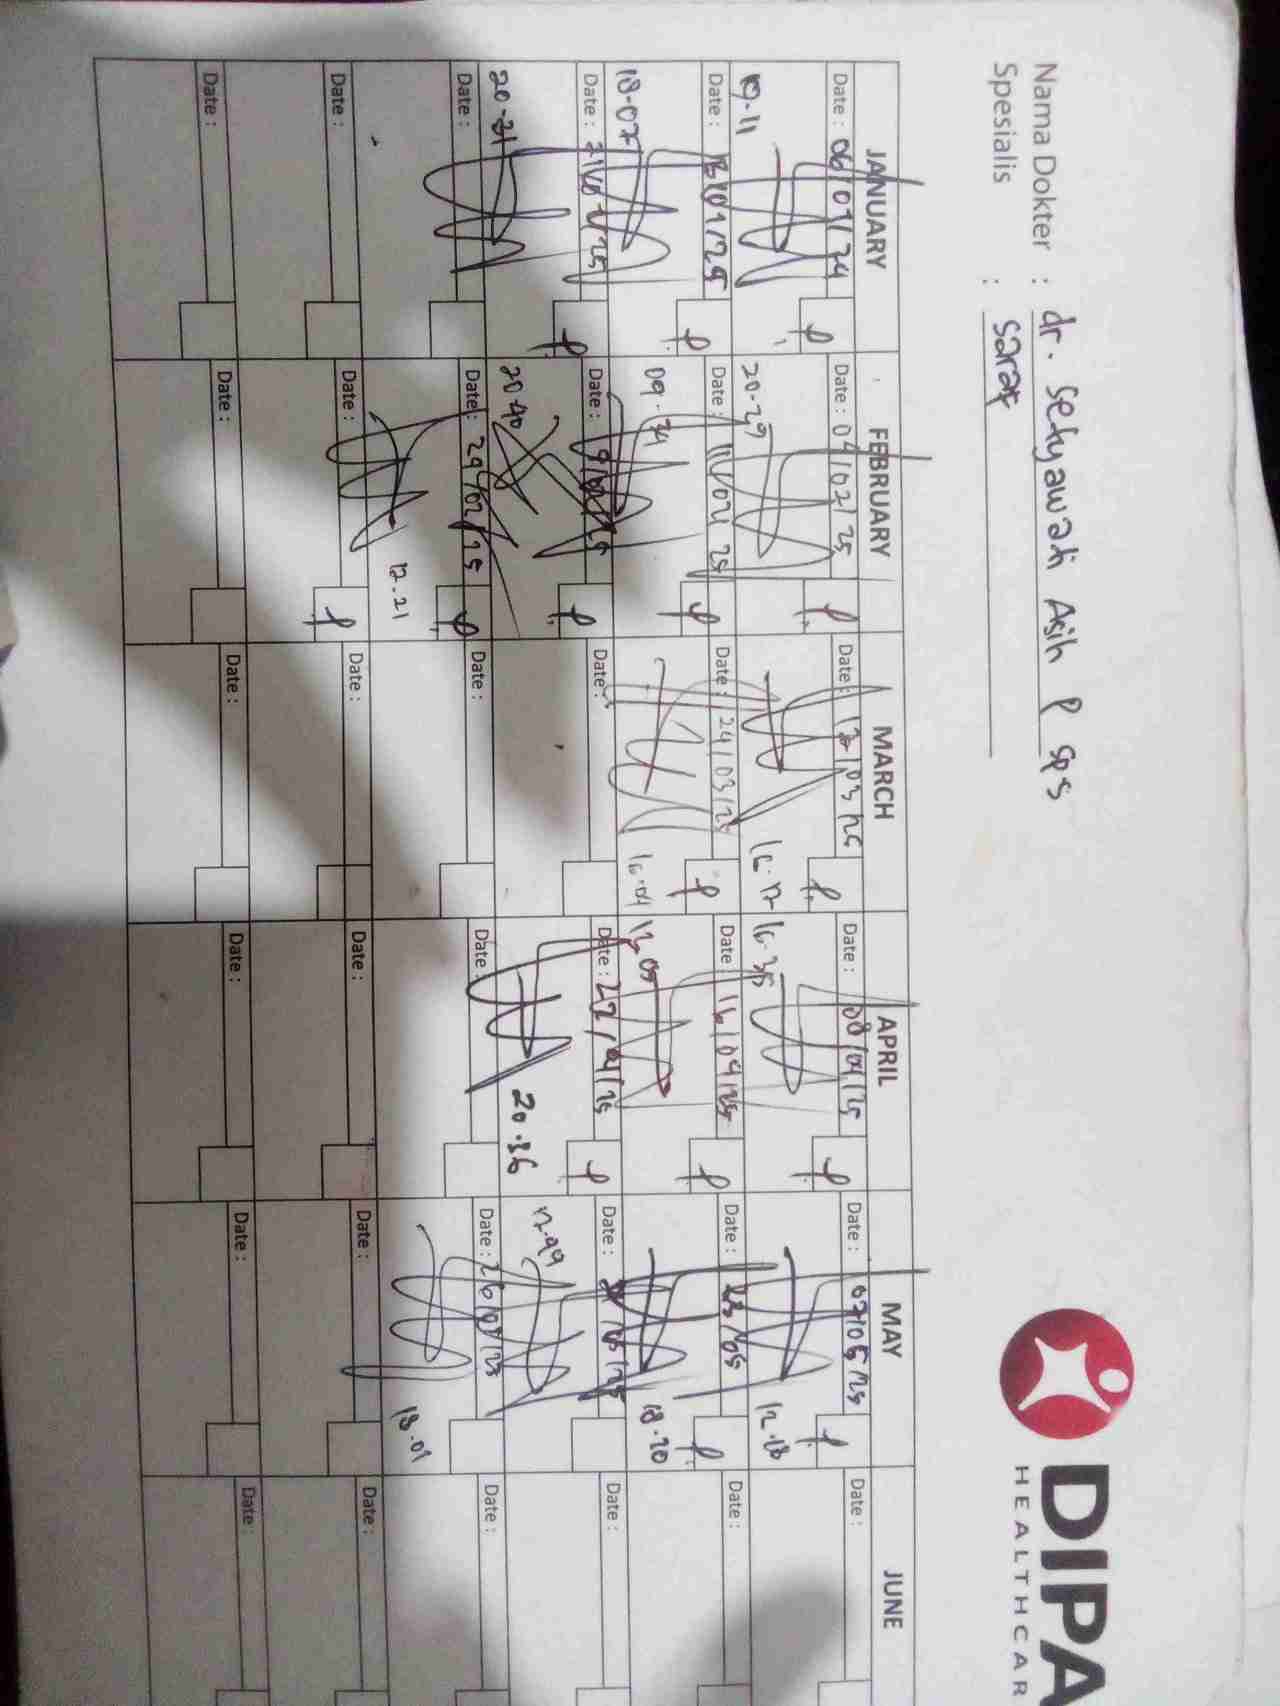 Nama Dokter : dr. Setyawati Asih P Sps
Spesialis : Saraf
DIPA
HEALTHCAR
JANUARY FEBRUARY MARCH APRIL MAY JUNE
Date : 06/01/24 Date : 04/02/25 Date : 12/03/25 Date : 08/04/25 Date : 07/05/25 Date :
19.11 20.29 16.17 16.35 12.18
Date : 13/01/25 Date : 11/02/25 Date : 24/03/25 Date : 16/04/25 Date : Date :
18.07 09.31 16.04 12.05 18.20
Date : 21/01/25 Date : Date : Date : 22/04/25 Date : Date :
20.31 20.40 20.36 17.49
Date : Date : 24/02/25 Date : Date : Date : 26/05/25 Date :
12.21 18.01
Date : Date : Date : Date : Date : Date :
Date : Date : Date : Date : Date : Date :